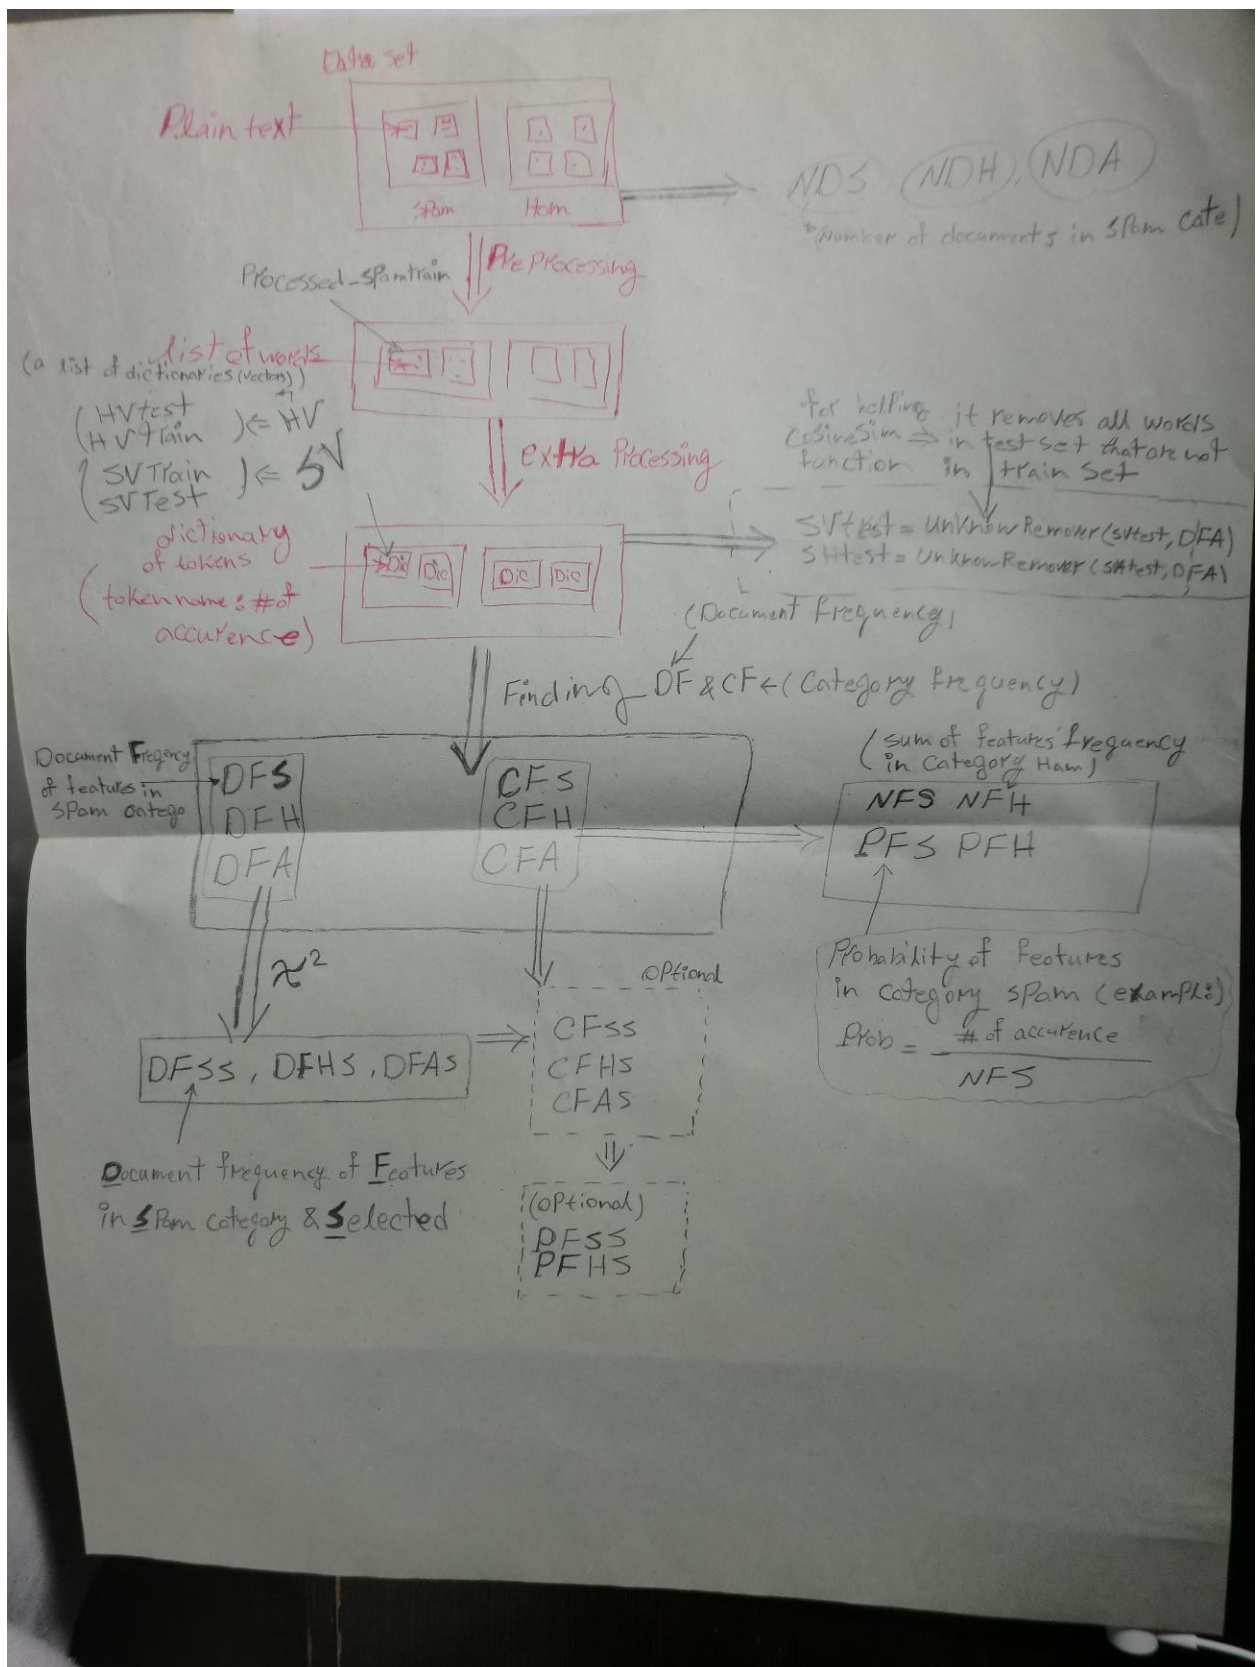 Data set
Plain text
Spam
Ham
NDS, NDH, NDA
(Number of documents in spam cate)
PreProcessing
Processed_spamtrain
list of words
(a list of dictionaries (vectors))
(HVtest
(HVtrain ) ⇐ HV
(SVTrain
(SVTest ) ⇐ SV
extra Processing
for helping
cosinesim ⇒
function
it removes all words
in test set that are not
in train set
SVtest = UnknowRemover(SVtest, DFA)
SHtest = UnknowRemover(SHtest, DFA)
dictionary
of tokens
(token name : # of
accurence)
Dic Dic Dic Dic
(Document frequency)
Finding DF & CF ← (Category frequency)
Document Freqency
of features in
spam catego
DFS
DFH
DFA
CFS
CFH
CFA
(sum of features frequency
in Category Ham)
NFS NFH
PFS PFH
Probability of features
in category spam (exampl:)
Prob = # of accurence
NFS
x²
DFSS, DFHS, DFAS
Document frequency of Features
in Spam category & Selected
optional
CFSS
CFHS
CFAS
(optional)
PFSS
PFHS